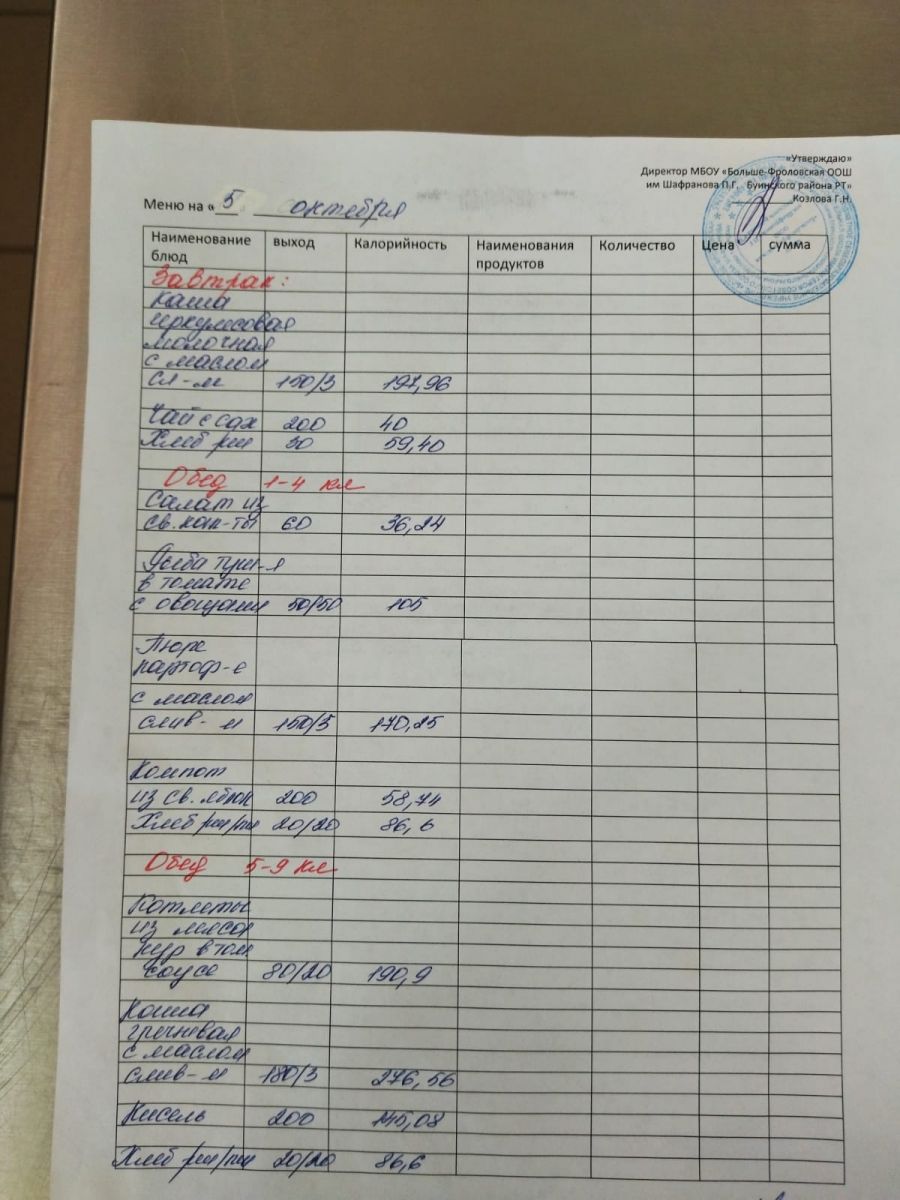 «Утверждаю»
Директор МБОУ «Больше-Фроловская ООШ
им Шафранова П.Г. Буинского района РТ»
Козлова Г.Н.
Меню на « 5 октября
Наименование блюд выход Калорийность Наименования продуктов Количество Цена сумма
Завтрак:
Каша
геркулесовая
молочная
с маслом
сл-м 150/3 197,96
Чай с сах 200 40
Хлеб рж 30 59,40
Обед 1-4 кл
Салат из
св. кап-ты 60 36,24
Рыба туш-я
в томате
с овощами 50/50 105
Пюре
картоф-е
с маслом
слив-м 150/5 170,25
Компот
из св. яблок 200 58,74
Хлеб рж/пш 20/20 86,6
Обед 5-9 кл
Котлеты
из мяса
кур в том
соусе 80/20 190,9
Каша
гречневая
с маслом
слив-м 180/3 276,56
Кисель 200 145,08
Хлеб рж/пш 20/20 86,6